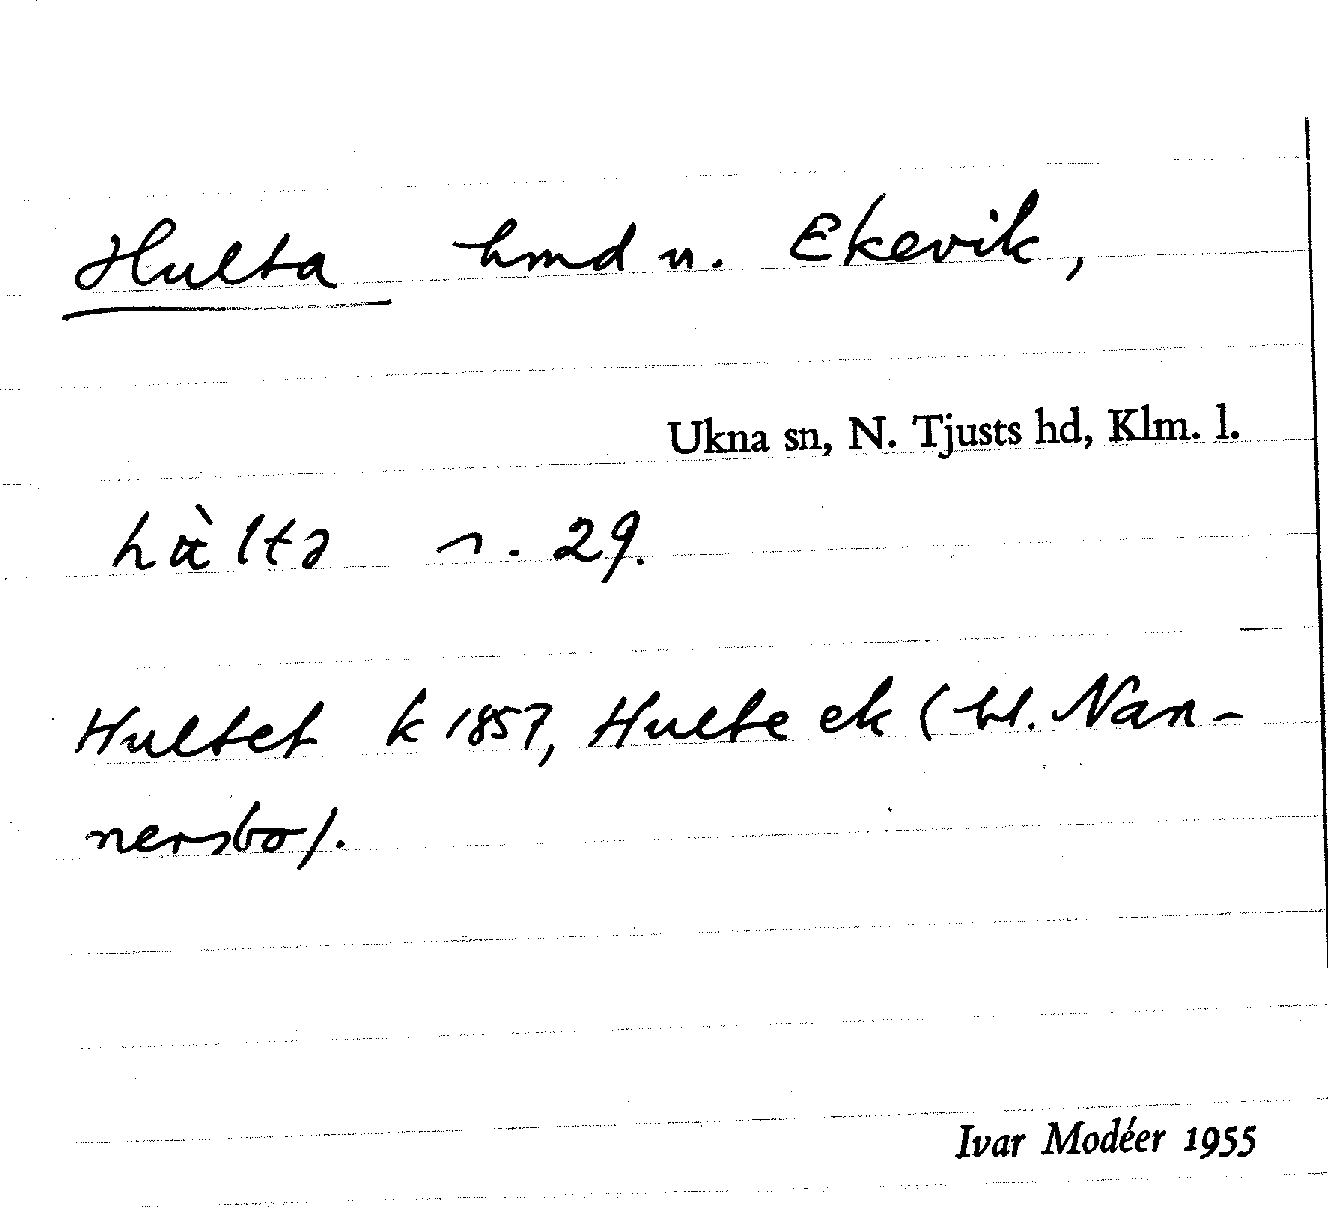 Hulta hmd u. Ekevik,
Ukna sn, N. Tjusts hd, Klm. l.
29.
Hultet k 1857, Hulte ek (bl. Nan-
nersbo).
Ivar Modéer 1955